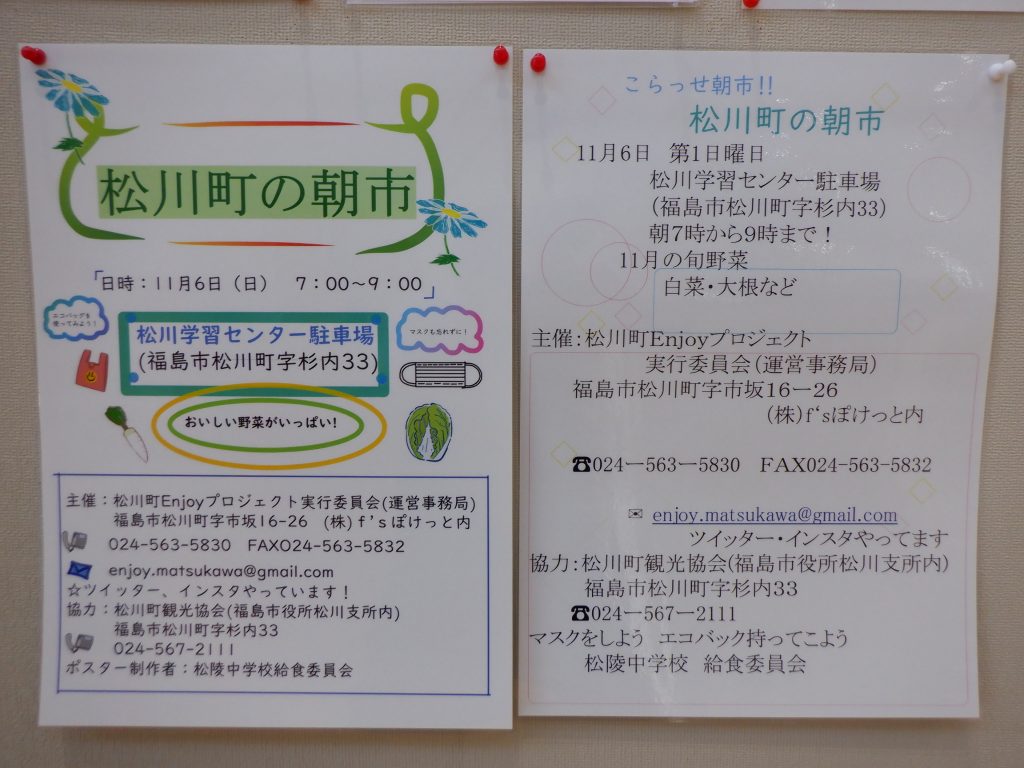 松川町の朝市
「日時：11月6日（日）　7：00～9：00」
エコバッグを
使ってみよう！
松川学習センター駐車場
(福島市松川町字杉内33)
マスクも忘れずに！
おいしい野菜がいっぱい!
主催：松川町Enjoyプロジェクト実行委員会(運営事務局)
福島市松川町字市坂16-26　(株)f'sぽけっと内
024-563-5830　FAX024-563-5832
enjoy.matsukawa@gmail.com
☆ツイッター、インスタやっています！
協力：松川町観光協会(福島市役所松川支所内)
福島市松川町字杉内33
024-567-2111
ポスター制作者：松陵中学校給食委員会
こらっせ朝市!!
松川町の朝市
11月6日　第1日曜日
松川学習センター駐車場
(福島市松川町字杉内33)
朝7時から9時まで！
11月の旬野菜
白菜・大根など
主催：松川町Enjoyプロジェクト
実行委員会(運営事務局)
福島市松川町字市坂16ー26
(株)f‘sぽけっと内
☎024ー563ー5830　FAX024-563-5832
✉ enjoy.matsukawa@gmail.com
ツイッター・インスタやってます
協力：松川町観光協会(福島市役所松川支所内)
福島市松川町字杉内33
☎024ー567ー2111
マスクをしよう　エコバック持ってこよう
松陵中学校　給食委員会